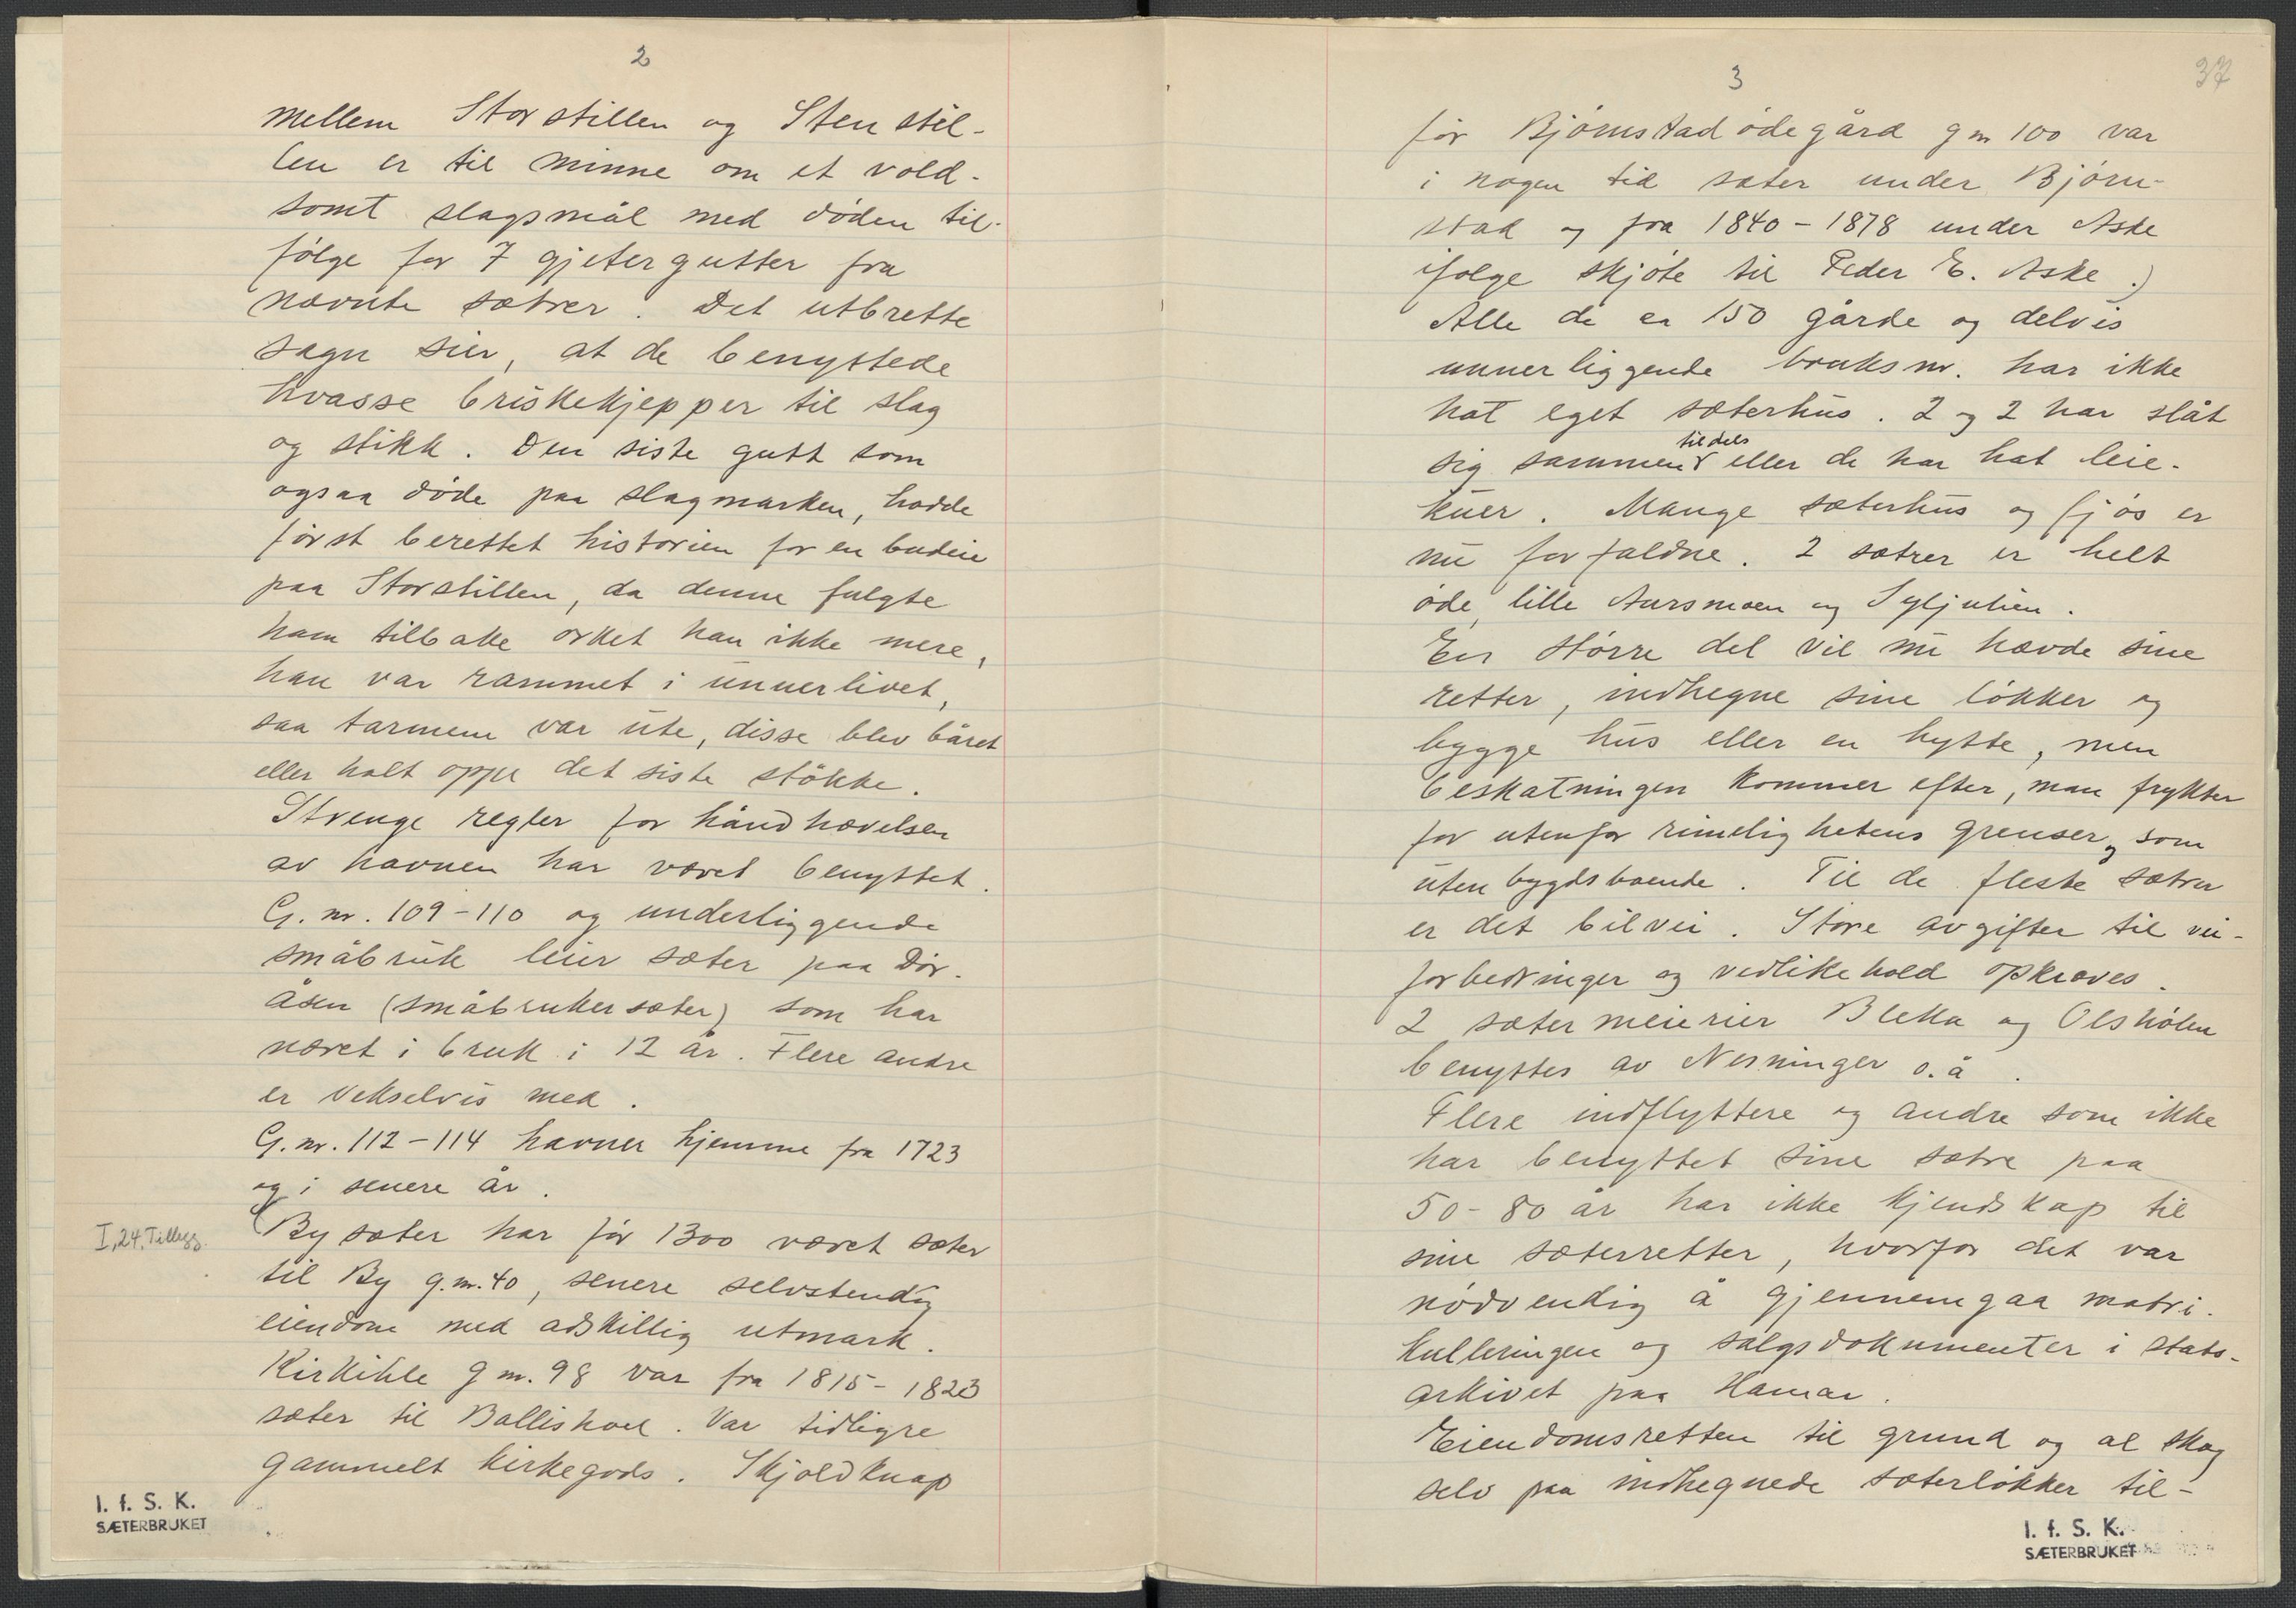 2
mellem Storstillen og Stenstil-
len er til minne om et vold-
somt slagsmål med døden til-
følge for 7 gjetergutter fra
nævnte sætrer. Det utbrette
sagn sier, at de benyttede
hvasse briskekjepper til slag
og stikk. Den siste gutt som
ogsaa døde paa slagmarken, hadde
først berettet historien for en budeie
paa Storstillen, da denne fulgte
ham tilbake orket han ikke mere,
han var rammet i unnerlivet,
saa tarmene var ute, disse blev båret
eller holt oppe det siste støkke.
Strenge regler for håndhævelsen
av havnen har været benyttet.
G. nr. 109-110 og underliggende
småbruk leier sæter paa Dør-
åsen (småbrukersæter) som har
været i bruk i 12 år. Flere andre
er vekselvis med.
G. nr. 112-114 havner hjemme fra 1723
og i senere år.
I, 24. Tillegg.
(By sæter har før 1300 været sæter
til By g.nr. 40, senere selvstendig
eiendom med adskillig utmark.
Kirkihle g nr. 98 var fra 1815-1823
sæter til Ballishoel. Var tidligre
gammelt kirkegods. Skjoldknap
I. f. S. K.
SÆTERBRUKET
3
37
før Bjørnstadødegård g nr 100 var
i nogen tid sæter under Bjørn-
stad og fra 1840-1878 under Aske
ifølge skjøte til Peder E. Aske.)
Alle de ca 150 gårde og delvis
unnerliggende bruksnr. har ikke
hat eget sæterhus. 2 og 2 har slåt
tildels
sig sammen eller de har hat leie-
kuer. Mange sæterhus og fjøs er
nu forfaldne. 2 sætrer er helt
øde, lille Aursmoen og Syljulien.
En større del vil nu hævde sine
retter, indhegne sine løkker og
bygge hus eller en hytte, men
beskatningen kommer efter, man frykter
for utenfor rimelighetens grenser, som
utenbygdsboende. Til de fleste sætrer
er det bilvei. Store avgifter til vei-
forbedringer og vedlikehold opkræves.
2 sætermeierier Bleka og Olshølen
benyttes av Nesninger o.å.
Flere indflyttere og andre som ikke
har benyttet sine sætre paa
50-80 år har ikke kjendskap til
sine sæterretter, hvorfor det var
nødvendig å gjennemgaa matri-
kulleringen og salgsdokumenter i stats-
arkivet paa Hamar.
Eiendomsretten til grund og al skog
selv paa indhegnede sæterløkker til-
I. f. S. K.
SÆTERBRUKET